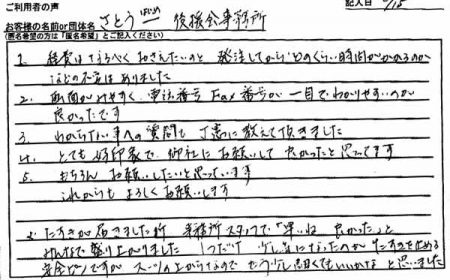 ご利用者の声
記入日 7/15
お客様の名前or団体名 さとう はじめ 後援会事務所
(匿名希望の方は「匿名希望」とご記入ください)
1. 経費はなるべくおさえたいのと 発注してからどのくらい時間がかかるのか
などの不安はありました
2. 画面がみやすく 電話番号 Fax番号が一目でわかりやすいのが
良かったです
3. わからない事への質問も 丁寧に教えて頂きました
4. とても好印象で 御社にお願いして良かったと思ってます
5. もちろん お願いしたいと思っています
これからも よろしくお願いします
たすきが届きました所 事務所スタッフで「早いね 良かった」と
みんなで盛り上がりました 1つだけ 少し気になったのが たすきを止める
安全ピンですが スーツの上からなので もう少し 大きくてもいいかな と思いました